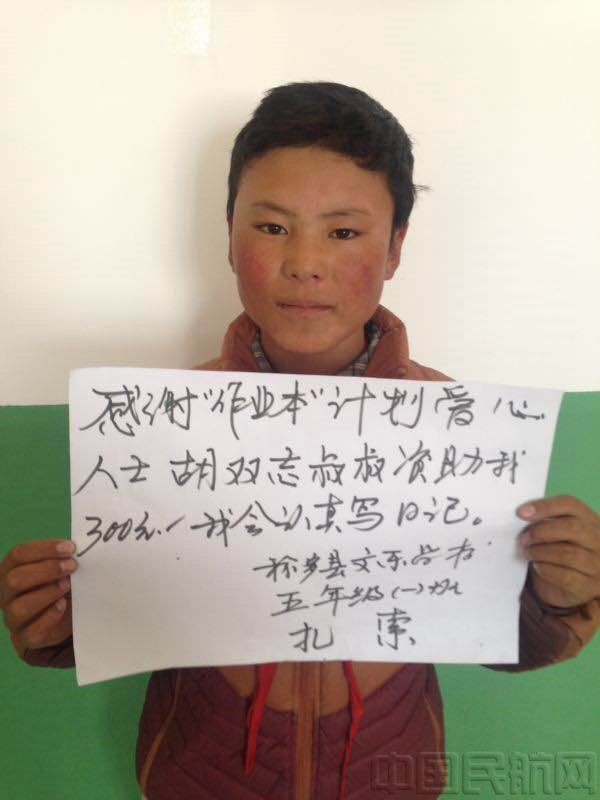 感谢"作业本"计划爱心
人士胡双志叔叔资助我
300元!我会认真写日记。
称多县文乐学校
五年级(一)班
扎索
中国民航网